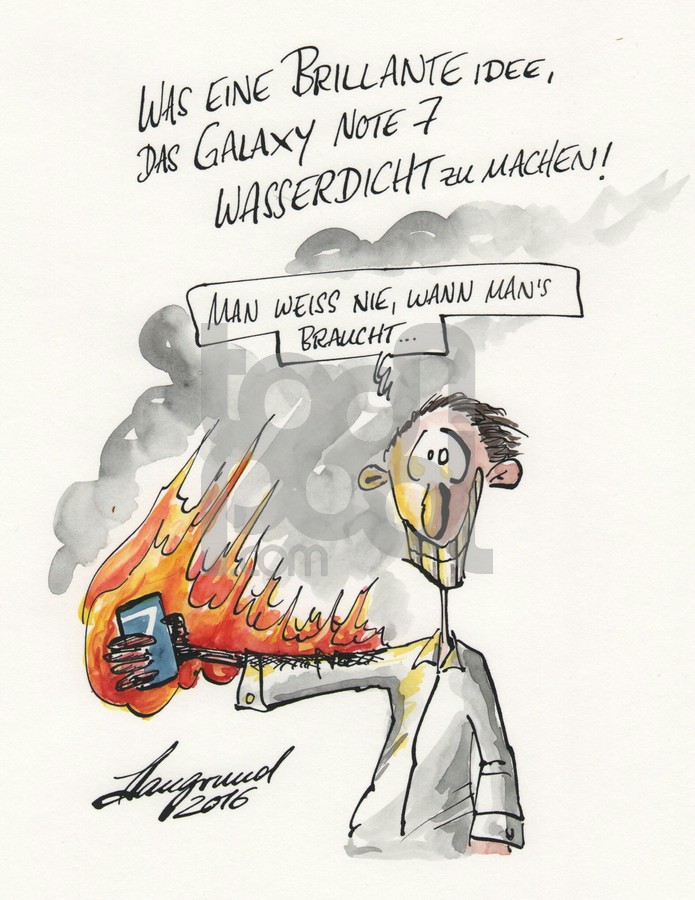 WAS EINE BRILLANTE IDEE,
DAS GALAXY NOTE 7
WASSERDICHT ZU MACHEN!
MAN WEISS NIE, WANN MAN'S
BRAUCHT...
toon
pool
.com
7
Haugrund
2016